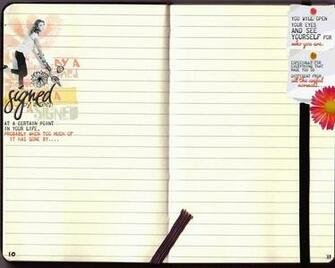 BY A
signed
SIGNED
AT A CERTAIN POINT
IN YOUR LIFE,
PROBABLY WHEN TOO MUCH OF
IT HAS GONE BY....
10
YOU WILL OPEN
YOUR EYES
AND SEE
YOURSELF FOR
who you are.
ESPECIALLY FOR
EVERYTHING THAT
MADE YOU SO
DIFFERENT FROM
all the awful
normals.